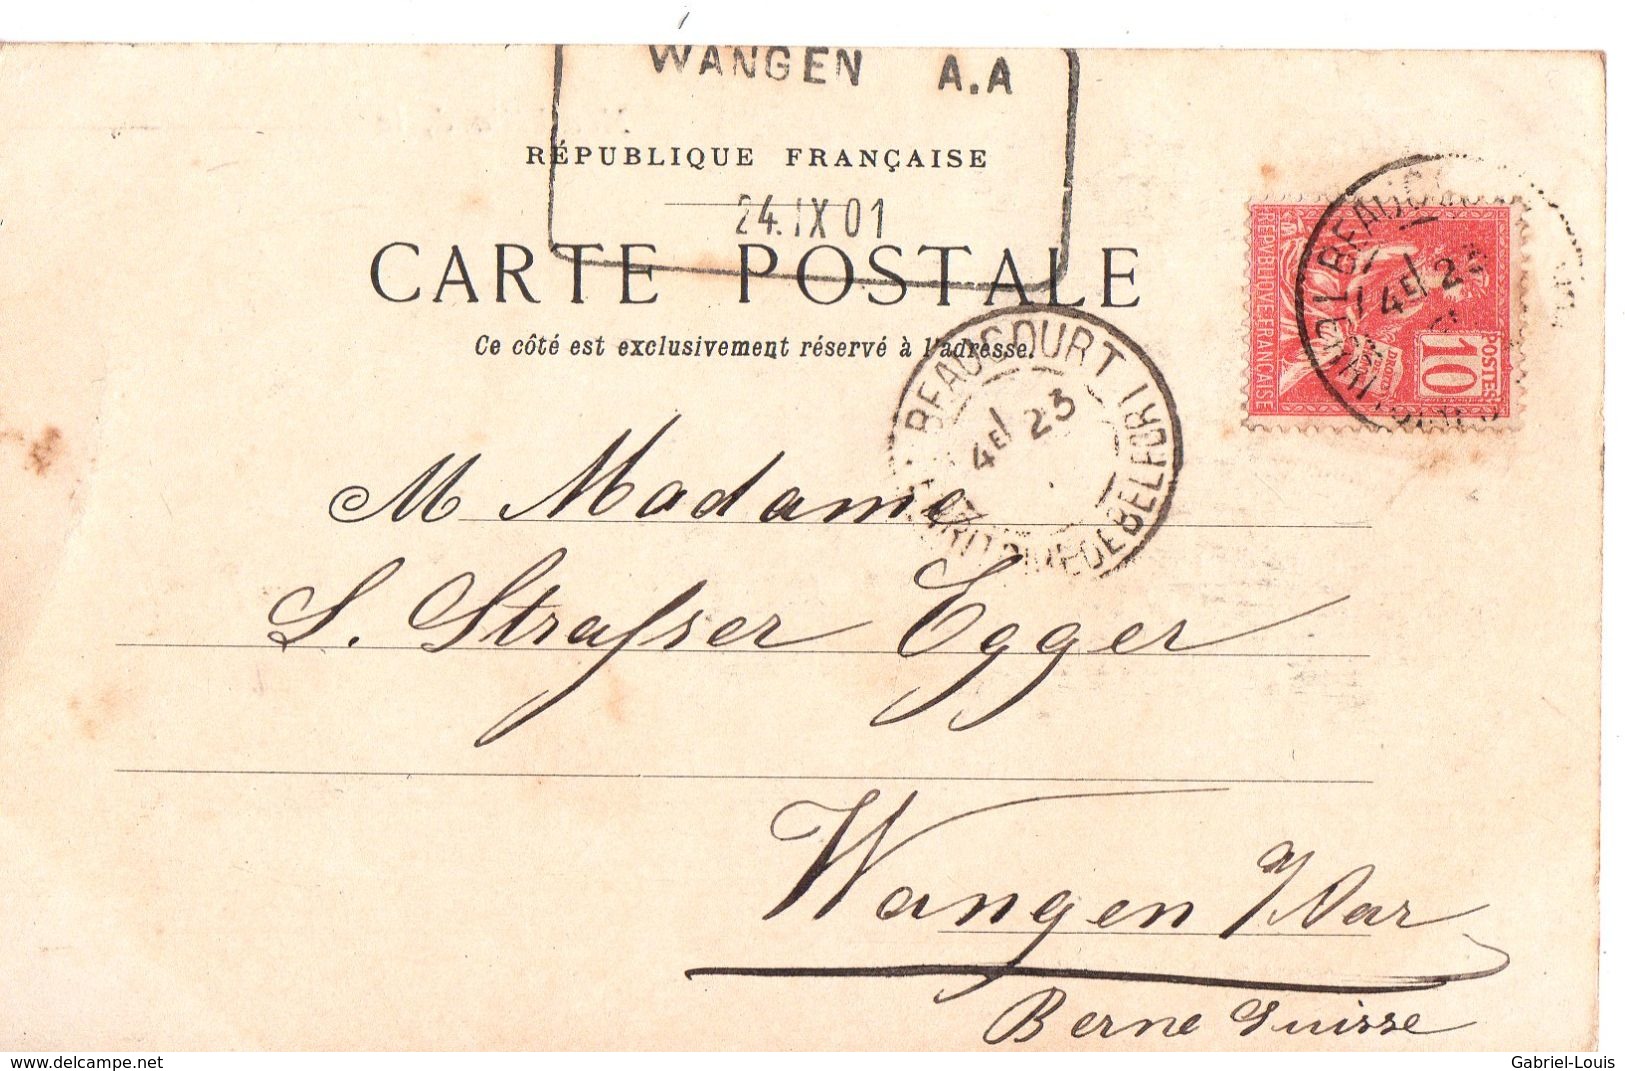 WANGEN A.A
RÉPUBLIQUE FRANÇAISE
24.IX 01
CARTE POSTALE
Ce côté est exclusivement réservé à l'adresse.
BEAUCOURT
4E 23
BELFORT
BEAUCOURT
4E 23
REPVBLIQVE FRANCAISE
10
POSTES
M Madame
S. Strasser Egger
Wangen a/Aar
Berne Suisse
www.delcampe.net
Gabriel-Louis